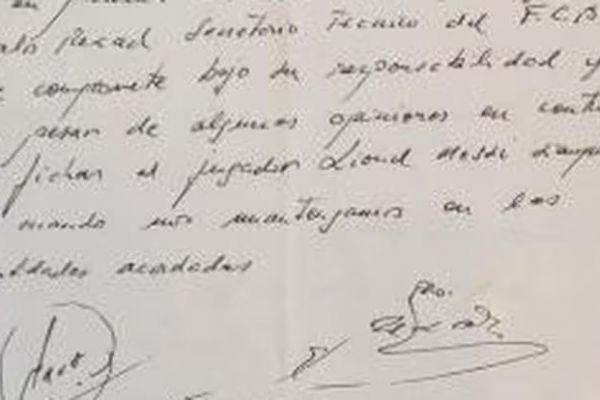 en
Secretario Técnico del F.C.B
compromete bajo su responsabilidad y
pesar de algunas opiniones en cont
fichar al jugador Lionel Messi siemp
cuando nos mantengamos en las
tidades acordadas